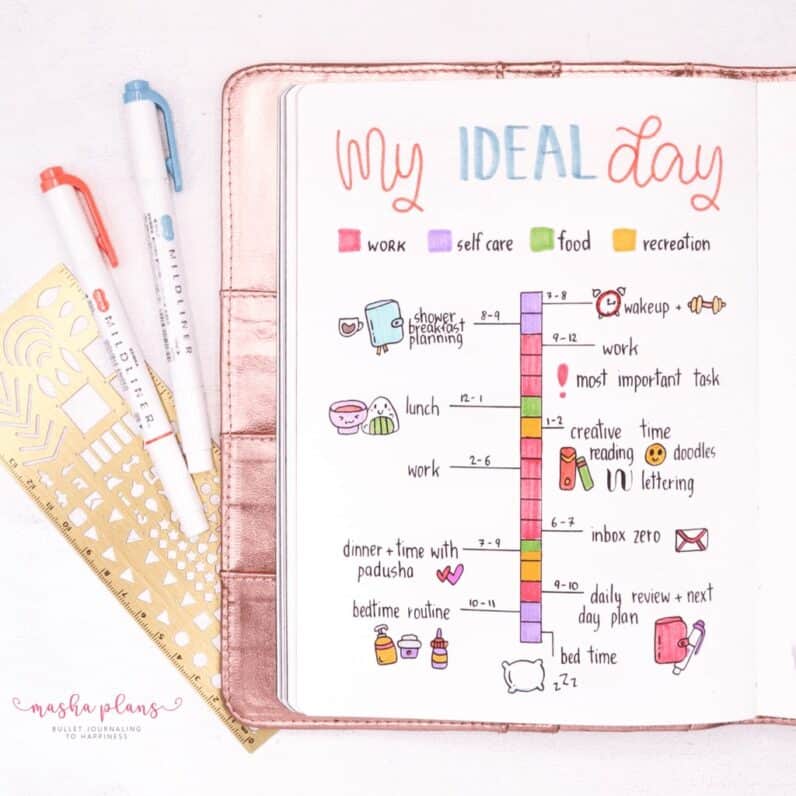 My IDEAL day
work
self care
food
recreation
7-8
wakeup +
8-9
shower
breakfast
planning
9-12
work
! most important task
12-1
lunch
1-2
creative time
reading
doodles
lettering
2-6
work
6-7
inbox zero
7-9
dinner + time with
padusha
9-10
daily review + next
day plan
10-11
bedtime routine
bed time
zzz
MILDLINER
MILDLINER
13 12 11 10 9 8 7 6 5 4 3 2 1 0
masha plans
BULLET JOURNALING
TO HAPPINESS